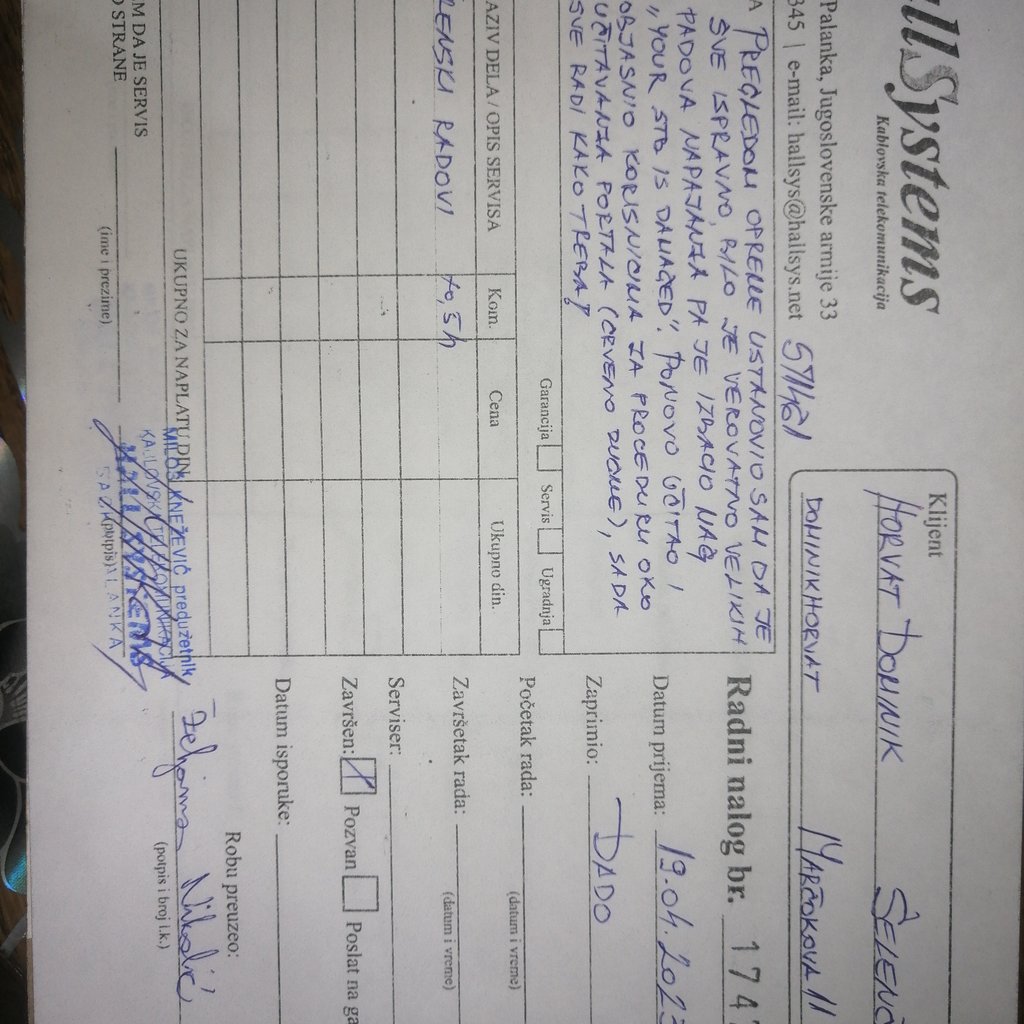 allSystems
Kablovska telekomunikacija
Palanka, Jugoslovenske armije 33
345 | e-mail: hallsys@hallsys.net
Klijent
HORVAT DOMINIK
DOMINIKHORVAT
MARČOKOVA 11
A PREGLEDOM OPREME USTANOVIO SAM DA JE
SVE ISPRAVNO, BILO JE VEROVATNO VELIKIH
PADOVA NAPAJANJA PA JE IZBACIO NAG
„YOUR STB IS DAMAGED”. PONOVO UČITAO I
OBJASNIO KORISNICIMA ZA PROCEDURU OKO
UČITAVANJA PORTALA (CRVENO DUGME), SADA
SVE RADI KAKO TREBA!
Garancija Servis Ugradnja
AZIV DELA / OPIS SERVISA Kom. Cena Ukupno din.
TERENSKI RADOVI 0,5h
UKUPNO ZA NAPLATU DIN
Radni nalog br. 174
Datum prijema: 19.04.2023
Zaprimio: DADO
Početak rada:
(datum i vreme)
Završetak rada:
(datum i vreme)
Serviser:
Završen: X Pozvan Poslat na ga
Datum isporuke:
M DA JE SERVIS
O STRANE
(ime i prezime)
(potpis)
MILOŠ KNEŽEVIĆ preduzetnik
KABLOVSKA TELEKOMUNIKACIJA
Hall Systems
PALANKA
Robu preuzeo:
Nikolić
(potpis i broj l.k.)